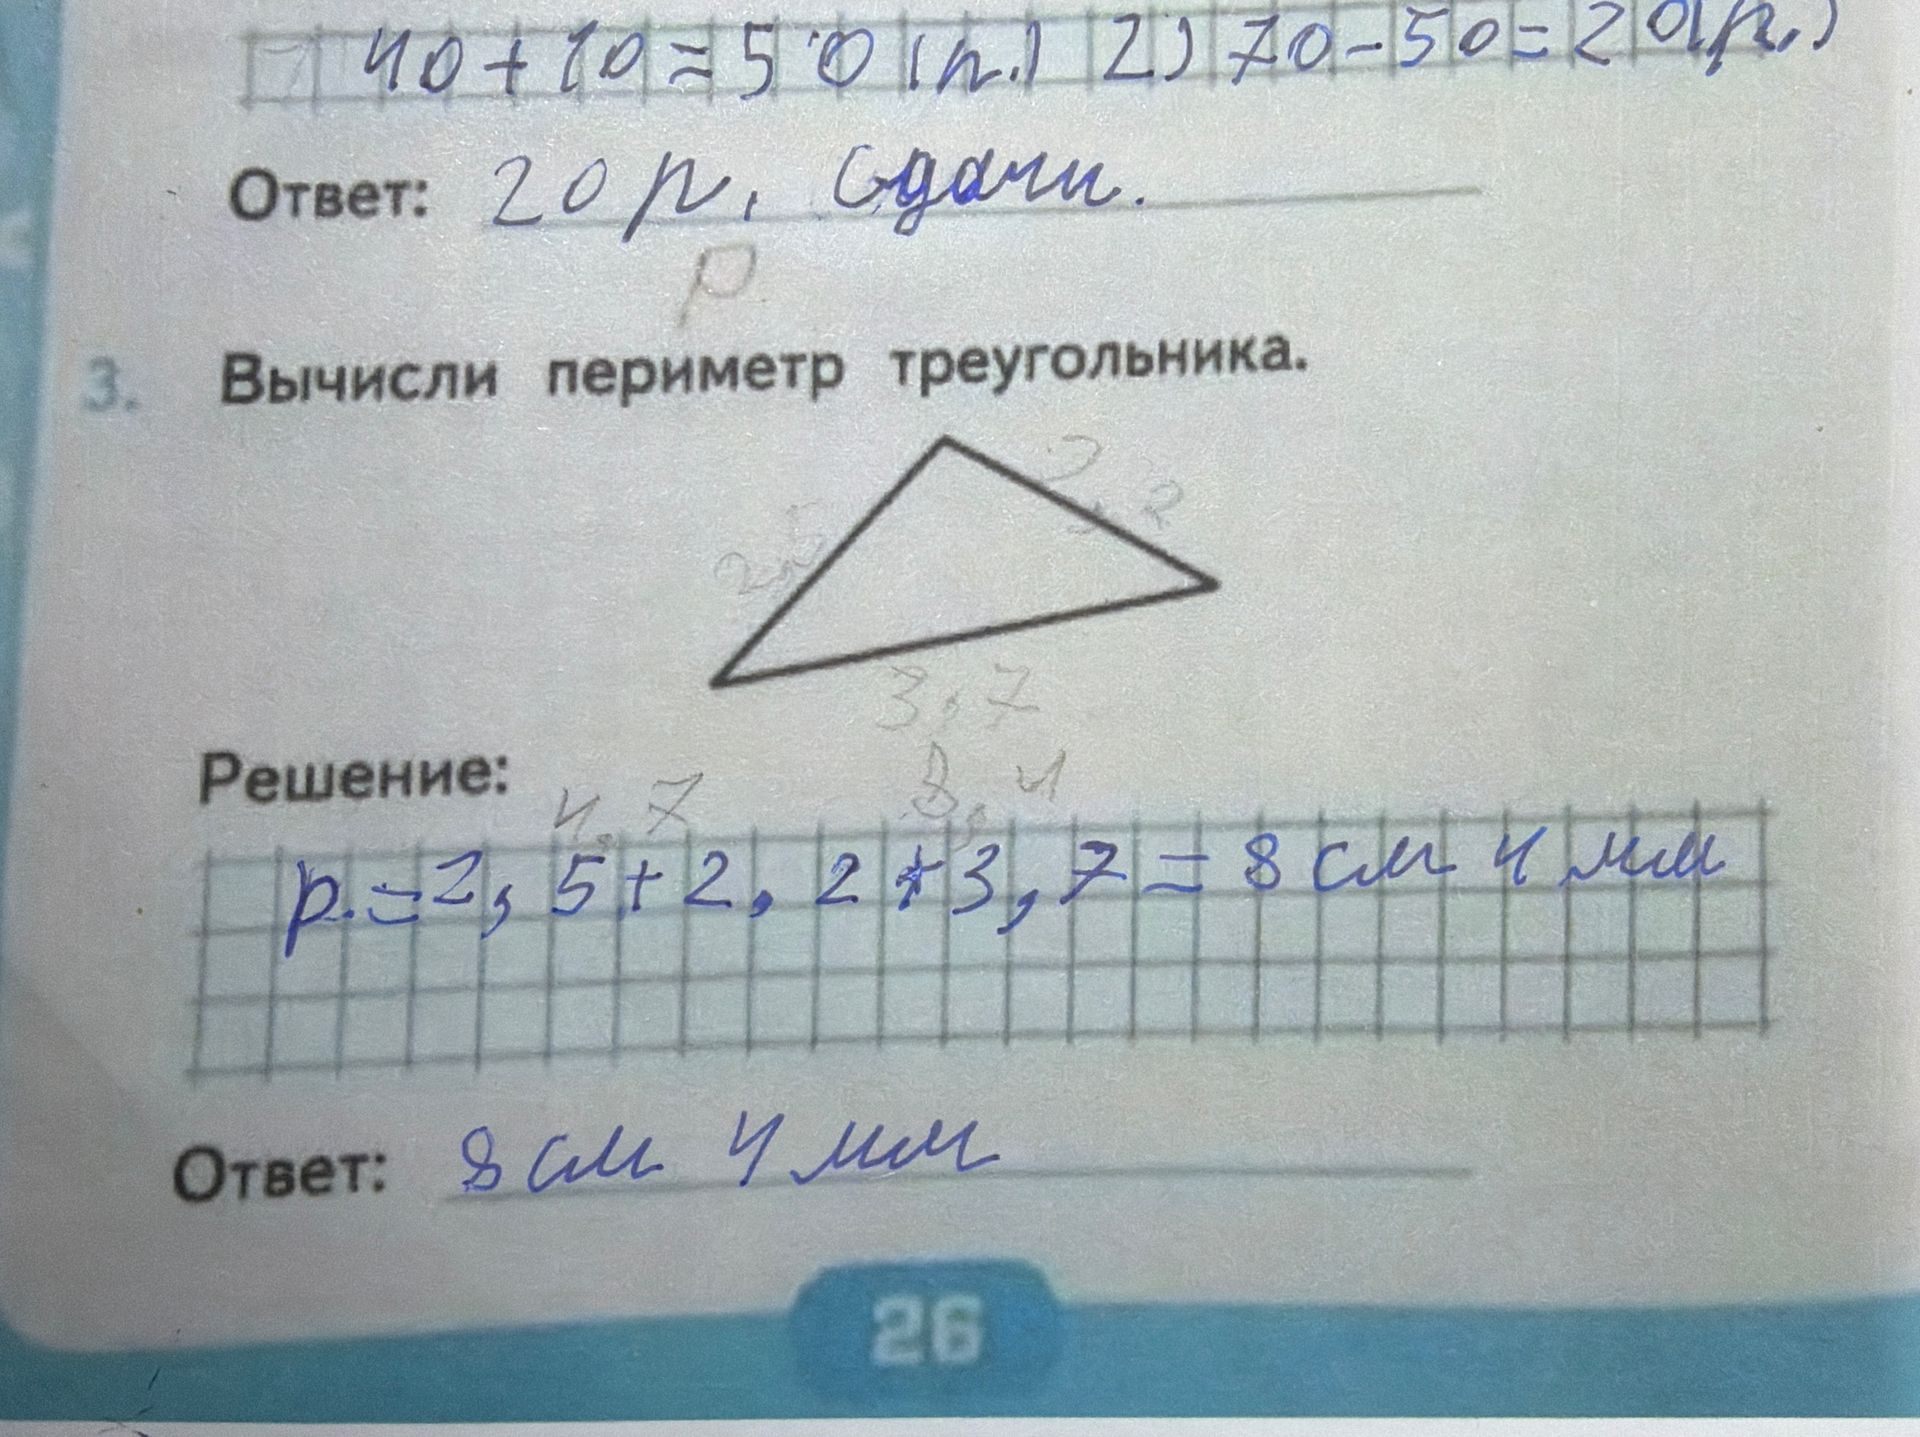 40+10=50(р.) 2) 70-50=20(р.)
Ответ: 20 р. сдачи.
р
3. Вычисли периметр треугольника.
2,2
2,5
3,7
Решение:
4,7 8,4
р.=2,5+2,2+3,7=8 см 4 мм
Ответ: 8 см 4 мм
26